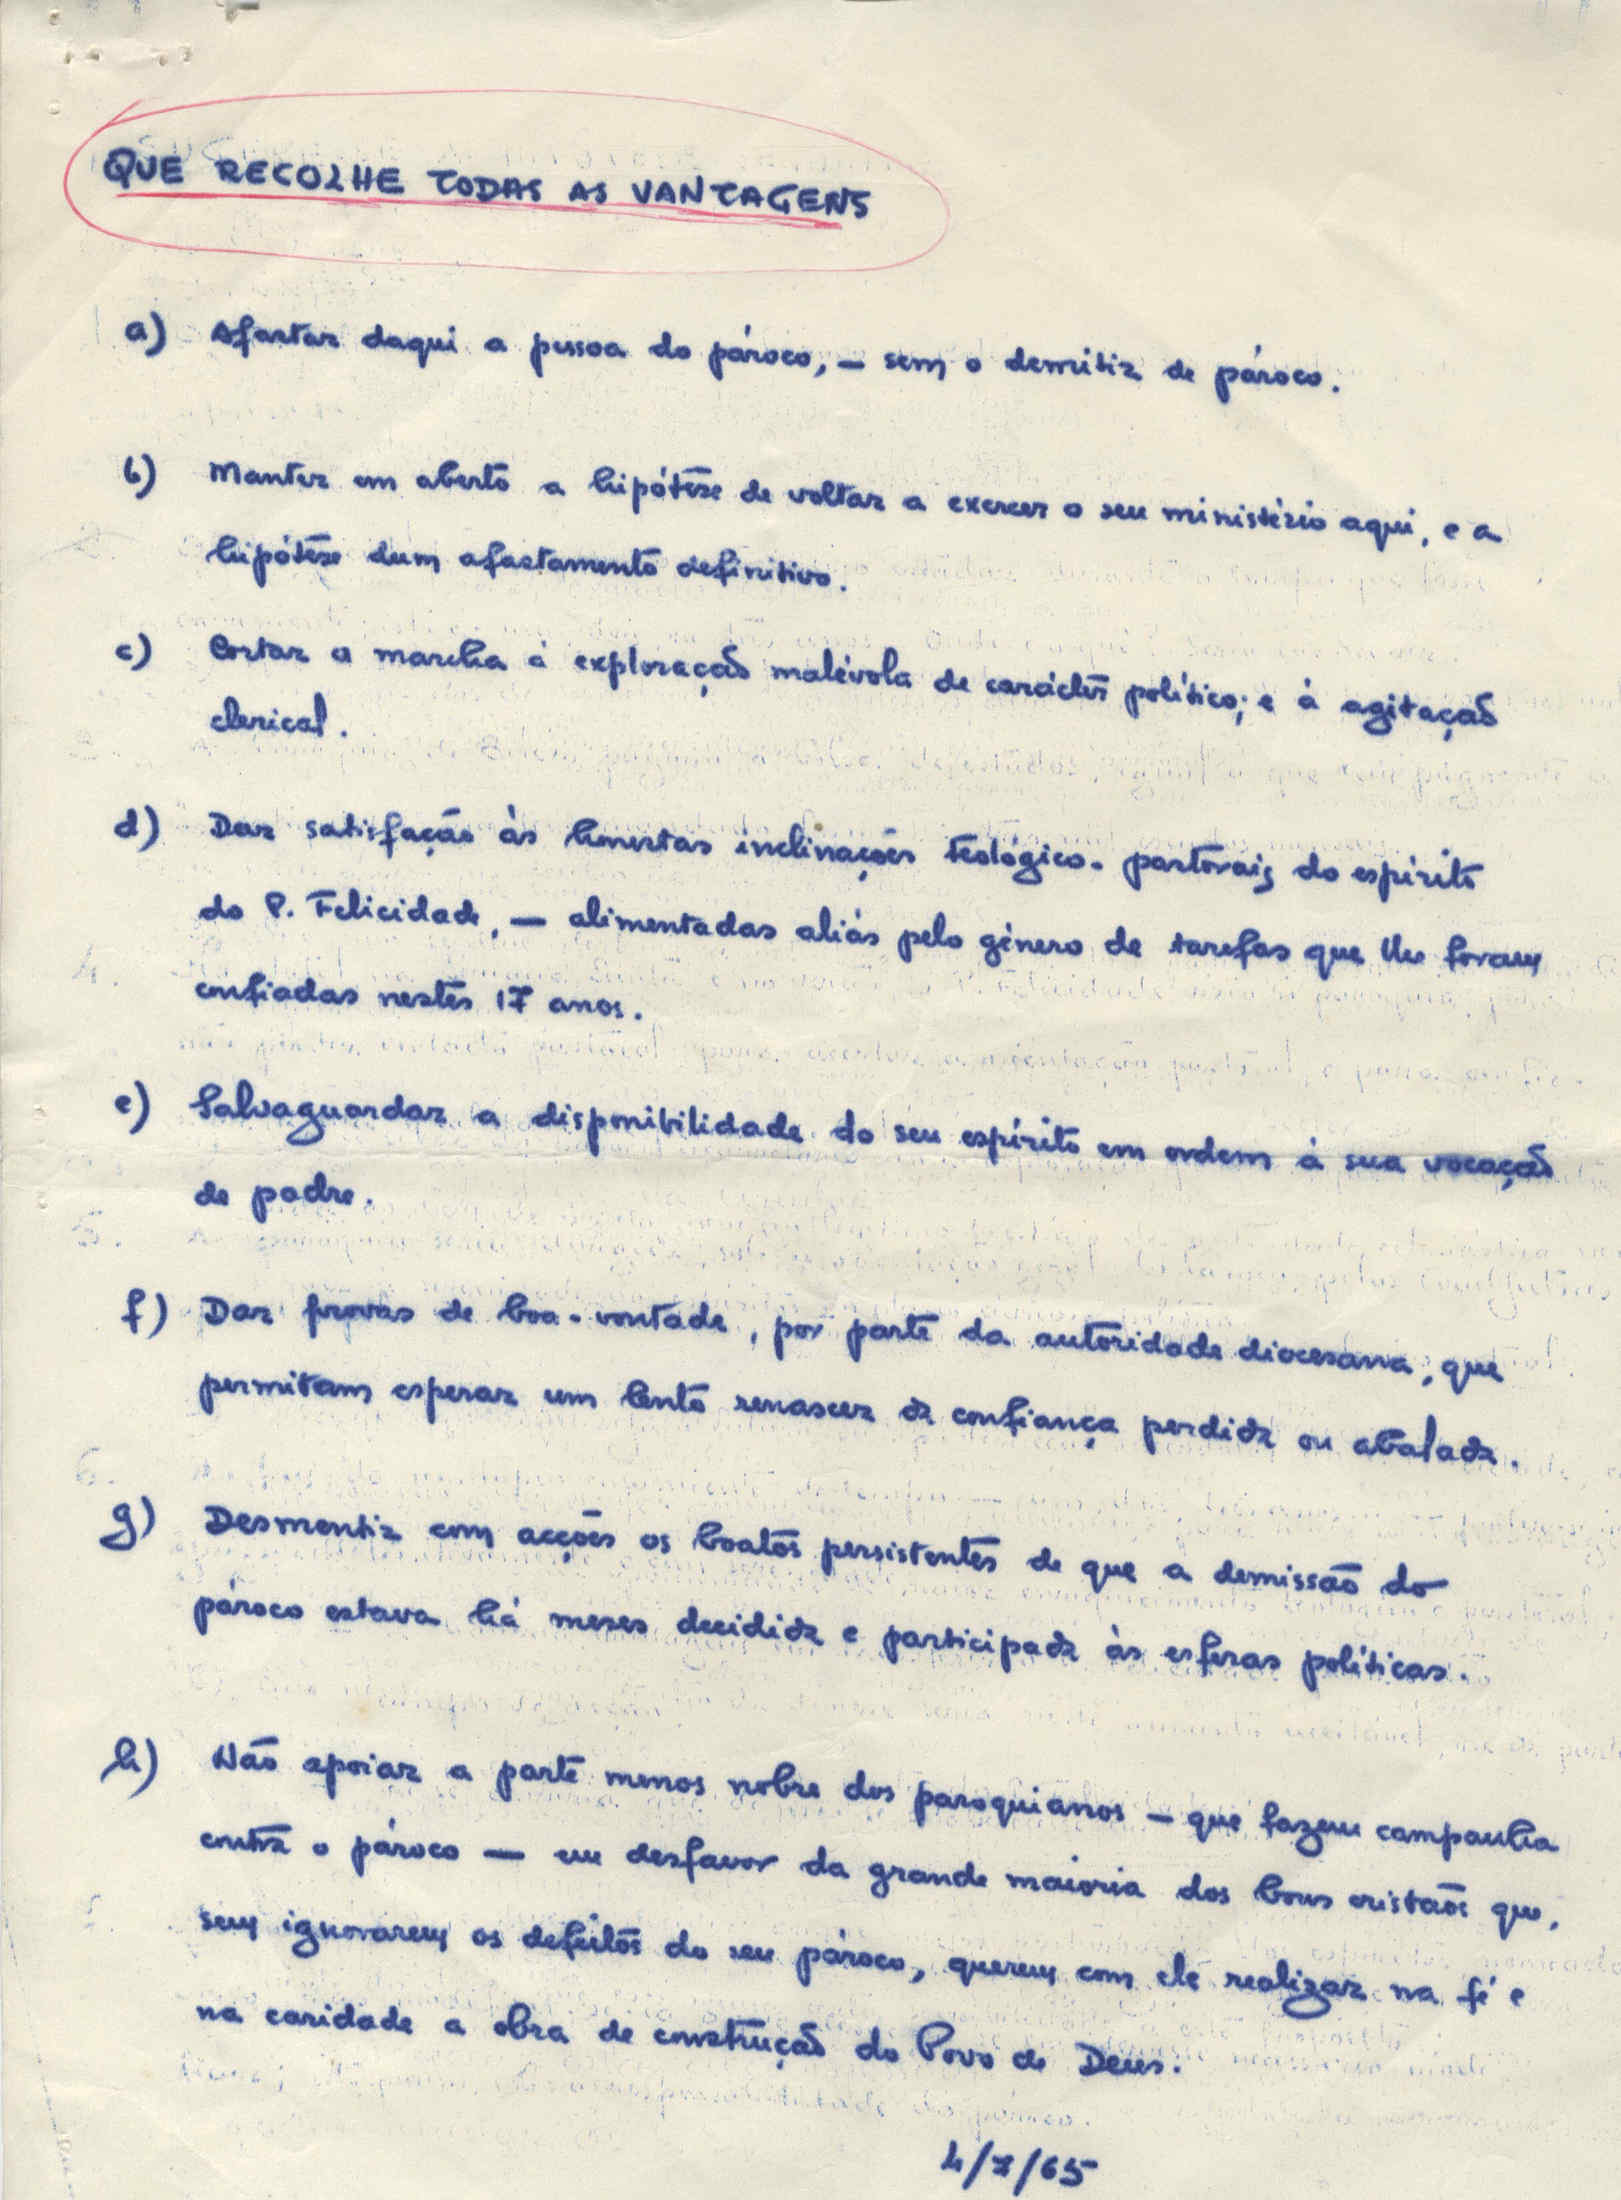 QUE RECOLHE TODAS AS VANTAGENS
a) Afastar daqui a pessoa do pároco, — sem o demitir de pároco.
b) Manter em aberto a hipótese de voltar a exercer o seu ministério aqui, e a
hipótese dum afastamento definitivo.
c) Cortar a marcha à exploração malévola de carácter político; e à agitação
clerical.
d) Dar satisfação às honestas inclinações teológico-pastorais do espírito
do P. Felicidade, — alimentadas aliás pelo género de tarefas que lhe foram
confiadas nestes 17 anos.
e) Salvaguardar a disponibilidade do seu espírito em ordem à sua vocação
de padre.
f) Dar provas de boa-vontade, por parte da autoridade diocesana, que
permitam esperar um lento renascer da confiança perdida ou abalada.
g) Desmentir com acções os boatos persistentes de que a demissão do
pároco estava há meses decidida e participada às esferas políticas.
h) Não apoiar a parte menos nobre dos paroquianos — que fazem campanha
contra o pároco — em desfavor da grande maioria dos bons cristãos que,
sem ignorarem os defeitos do seu pároco, querem com ele realizar na fé e
na caridade a obra de construção do Povo de Deus.
4/7/65